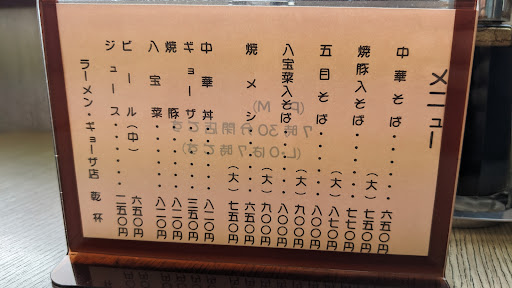 メニュー
中華そば・・・・・六五〇円
(大)七五〇円
焼豚入そば・・・・七五〇円
(大)八七〇円
五目そば・・・・・八〇〇円
(大)九〇〇円
八宝菜入そば・・・八〇〇円
(大)九〇〇円
焼メシ・・・・・・六五〇円
(大)七五〇円
中華丼・・・・・・八二〇円
ギョーザ・・・・・三五〇円
焼豚・・・・・・・八二〇円
八宝菜・・・・・・八二〇円
ビール(中)・・・・六五〇円
ジュース・・・・・一五〇円
ラーメン・ギョーザ店 乾杯
(P.M)
7時30分閉店です
(L.Oは7時です)